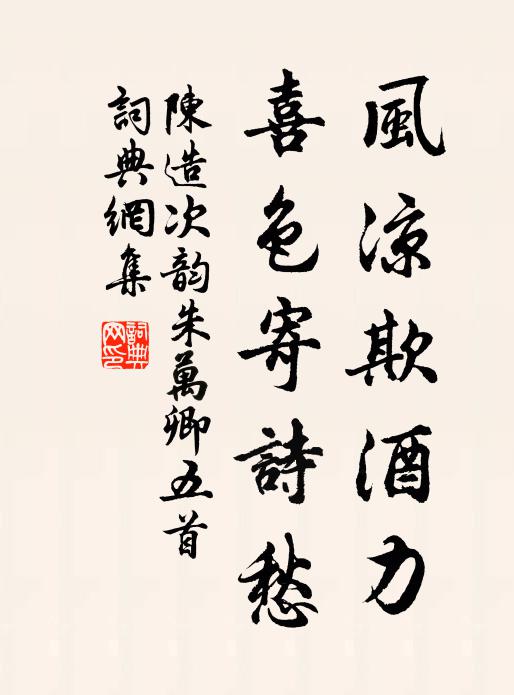 風凉欺酒力
喜色寄詩愁
陳造次韵朱萬卿五首
詞典網集
詞典网印